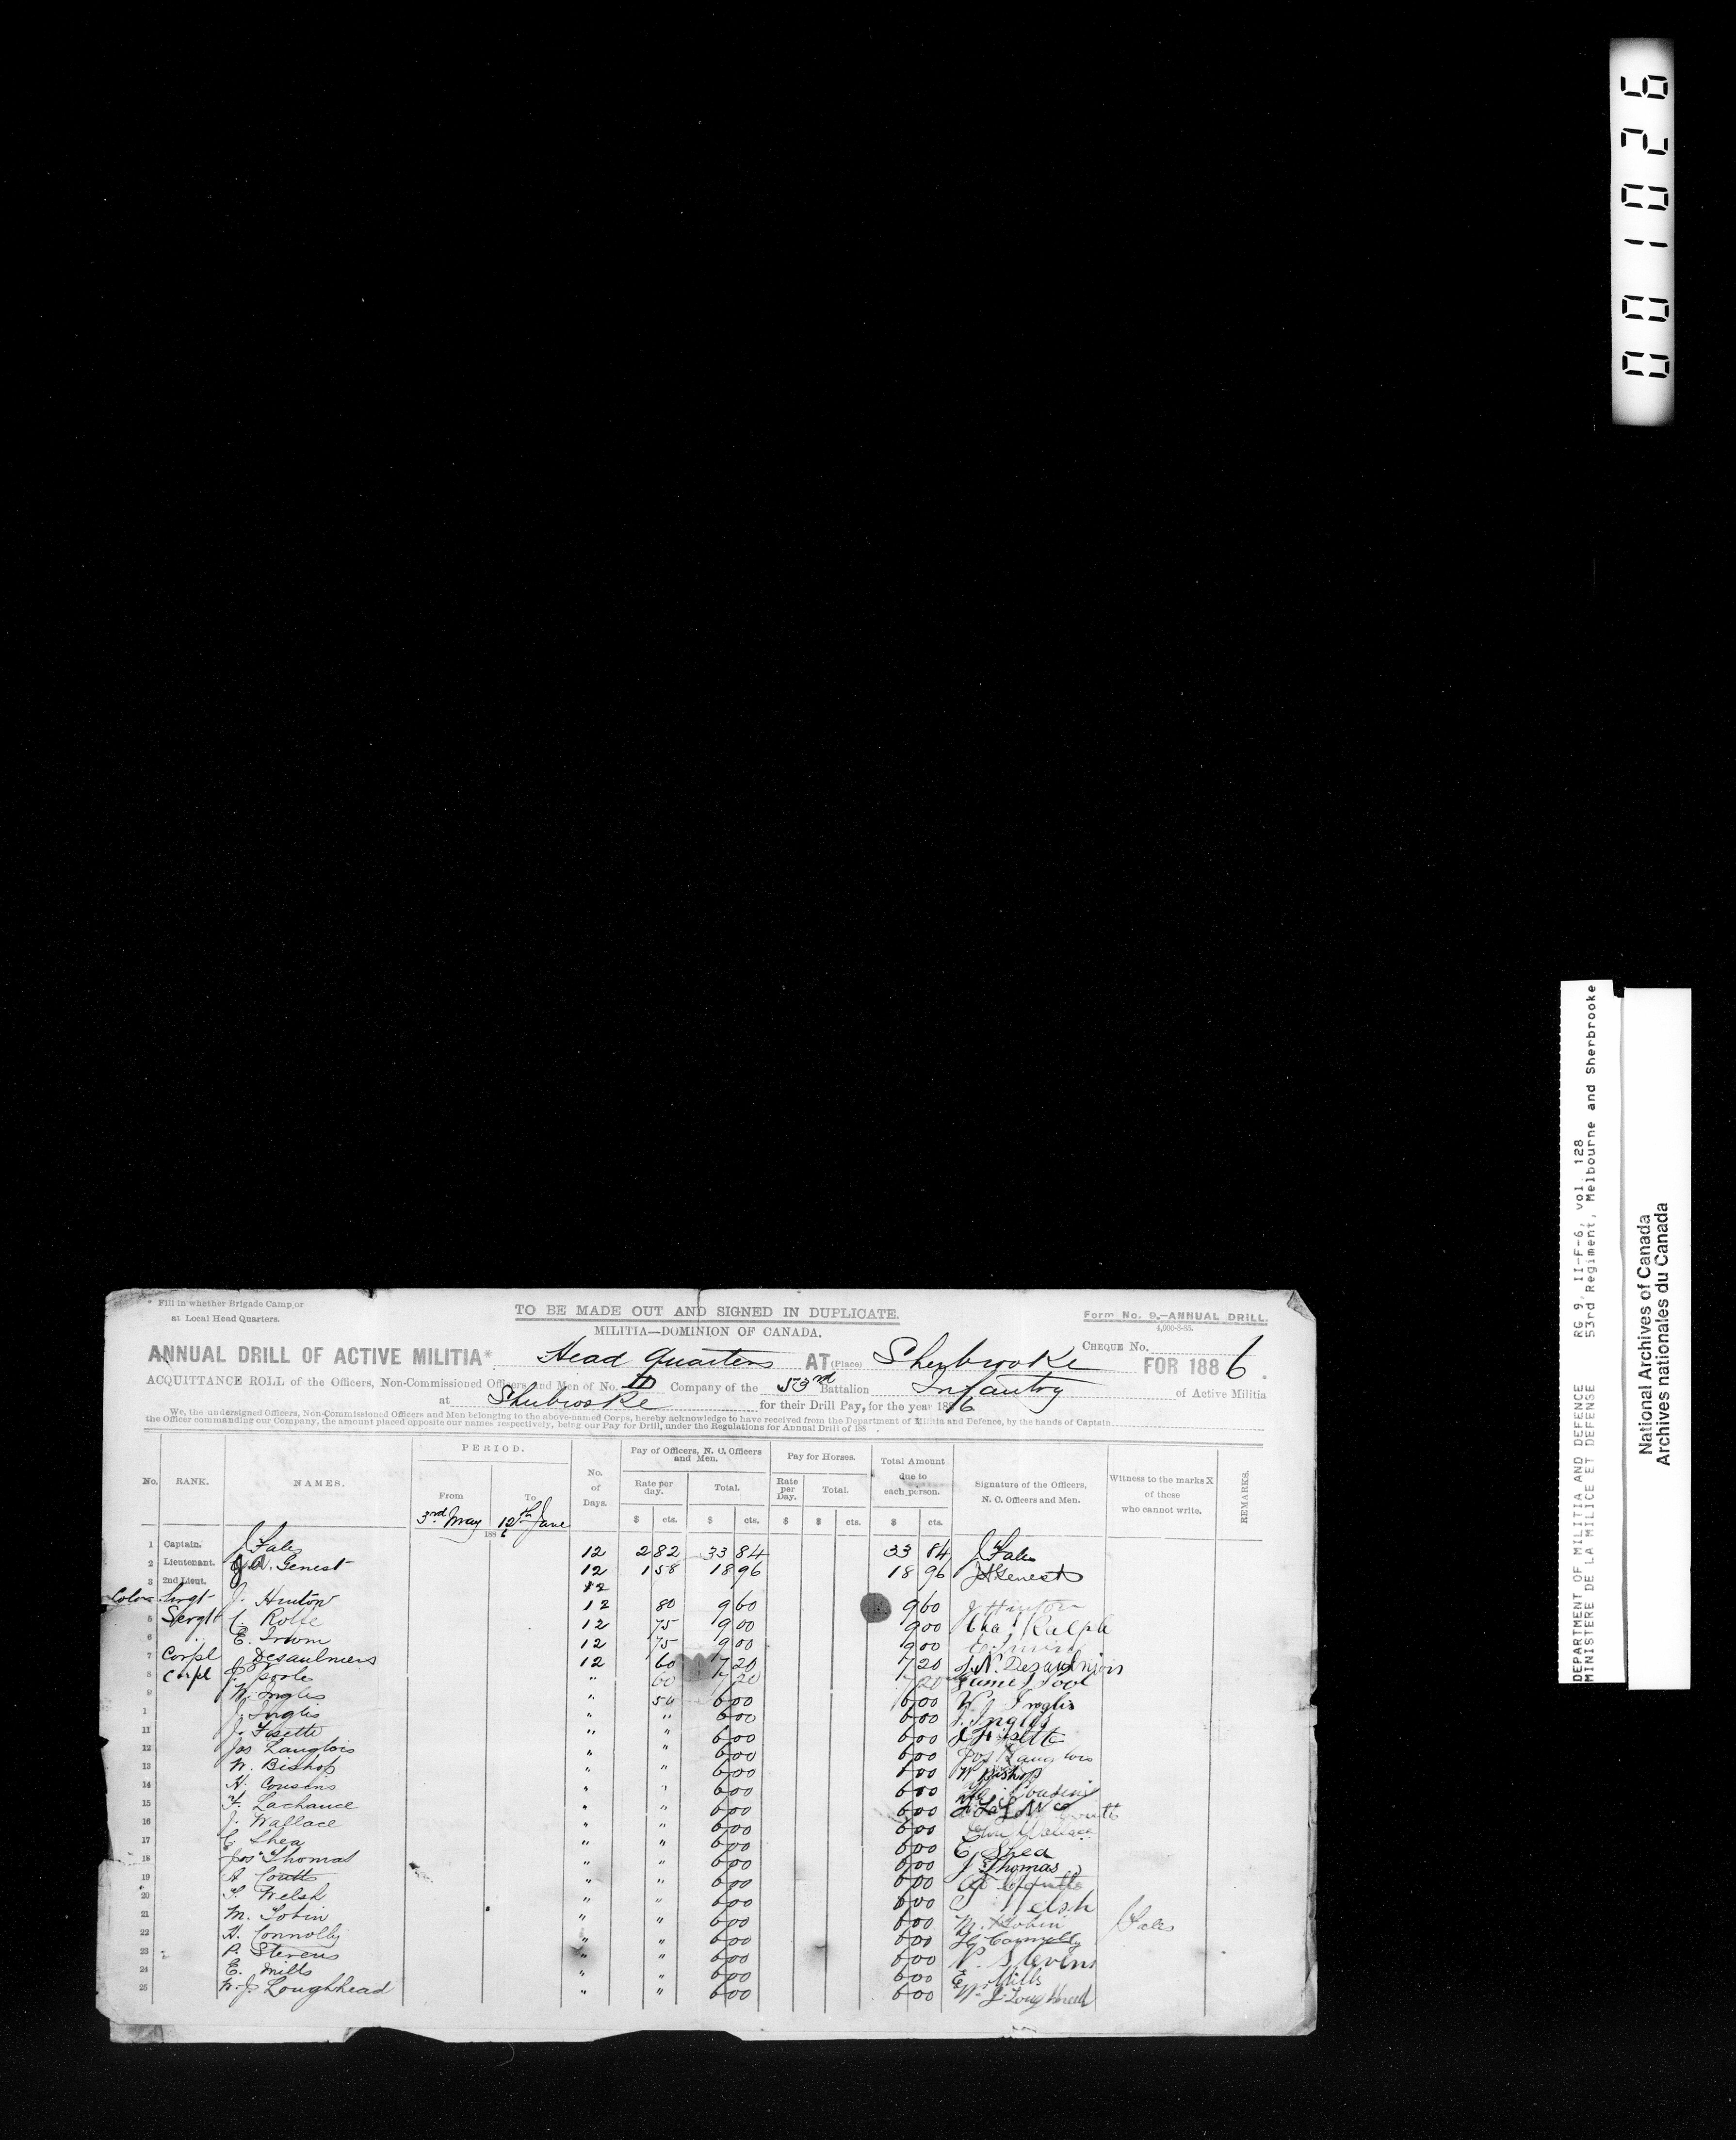 001026
* Fill in whether Brigade Camp or
at Local Head Quarters.
TO BE MADE OUT AND SIGNED IN DUPLICATE.
Form No. 9.—ANNUAL DRILL.
4,000-8-85.
MILITIA—DOMINION OF CANADA.
CHEQUE No.
ANNUAL DRILL OF ACTIVE MILITIA* Head Quarters AT (Place) Sherbrooke FOR 1886.
ACQUITTANCE ROLL of the Officers, Non-Commissioned Officers and Men of No. Company of the 53rd Battalion Infantry of Active Militia
at Sherbrooke for their Drill Pay, for the year 1886
We, the undersigned Officers, Non-Commissioned Officers and Men belonging to the above-named Corps, hereby acknowledge to have received from the Department of Militia and Defence, by the hands of Captain
the Officer commanding our Company, the amount placed opposite our names respectively, being our Pay for Drill, under the Regulations for Annual Drill of 188 .
No. RANK. NAMES. PERIOD. From 3rd May To 12th June 1886 No. of Days. Pay of Officers, N. C. Officers and Men. Rate per day. $ cts. Total. $ cts. Pay for Horses. Rate per Day. $ Total. $ cts. Total Amount due to each person. $ cts. Signature of the Officers, N. C. Officers and Men. Witness to the marks X of those who cannot write. REMARKS.
1 Captain. J Fales 12 2 82 33 84 33 84 J Fales
2 Lieutenant. J A. Genest 12 1 58 18 96 18 96 JA Genest
3 2nd Lieut. 12
Color Sergt J. Hinton 12 80 9 60 9 60 J Hinton
5 Sergt C. Rolfe 12 75 9 00 9 00 Chas Ralph
6 " E. Irwin 12 75 9 00 9 00
7 Corpl Desaulniers 12 60 7 20 7 20 J. N. Desaulniers
8 Corpl J. Poole " 60 7 20 7 20 James Pool
9 W. Inglis " 50 6 00 6 00 W. J Inglis
1 J. Inglis " " 6 00 6 00 J. Inglis
11 J. Fisette " " 6 00 6 00 J Fisette
12 Jos Langlois " " 6 00 6 00 Jos Langlois
13 W. Bishop " " 6 00 6 00 W Bishop
14 H. Cousins " " 6 00 6 00 Cousins
15 F. Lachance " " 6 00 6 00
16 J. Wallace " " 6 00 6 00 Wallace
17 C. Shea " " 6 00 6 00 C, Shea
18 Jos Thomas " " 6 00 6 00 J Thomas
19 A Coutts " " 6 00 6 00 Coutts
20 T. Welsh " " 6 00 6 00 T Welsh
21 M. Tobin " " 6 00 6 00 M. Tobin J Fales
22 H. Connolly " " 6 00 6 00 H Connolly
23 P. Stevens " " 6 00 6 00 P. Stevens
24 E. Mills " " 6 00 6 00 E. Mills
25 W. J. Loughhead " " 6 00 6 00 W. J. Loughhead
DEPARTMENT OF MILITIA AND DEFENCE RG 9, II-F-6, vol. 128
MINISTERE DE LA MILICE ET DEFENSE 53rd Regiment, Melbourne and Sherbrooke
National Archives of Canada
Archives nationales du Canada